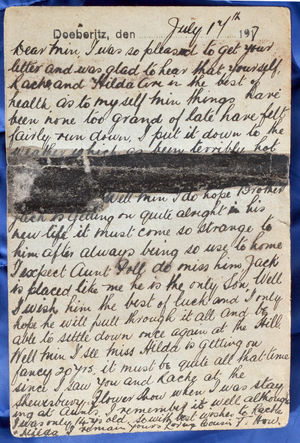 Doeberitz, den July 17th 191
Dear Min, I was so pleased to get your
letter and was glad to hear that yourself,
Kache and Hilda are in the best of
health as to myself min things have
been none too grand of late have felt
fairly run down, I put it down to the
which as been terribly hot
Well Min I do hope Brother
Jack is getting on quite alright in his
new life it must come so strange to
him after always being so use to home
I expect Aunt Poll do miss him Jack
is placed like me he is the only Son, Well
I wish him the best of luck and I only
hope he will pull through it all and be
able to settle down once again at the Hill
Well Min I see Miss Hilda is getting on
fancy 20 yrs. it must be quite all that time
since I saw you and Kache at the
Shrewsbury Flower Show when I was stay
ing at Aunts. I remember it well although
I was only 14 yrs old. so with best wishes to Kache
& Hilda I remain yours loving Cousin T.